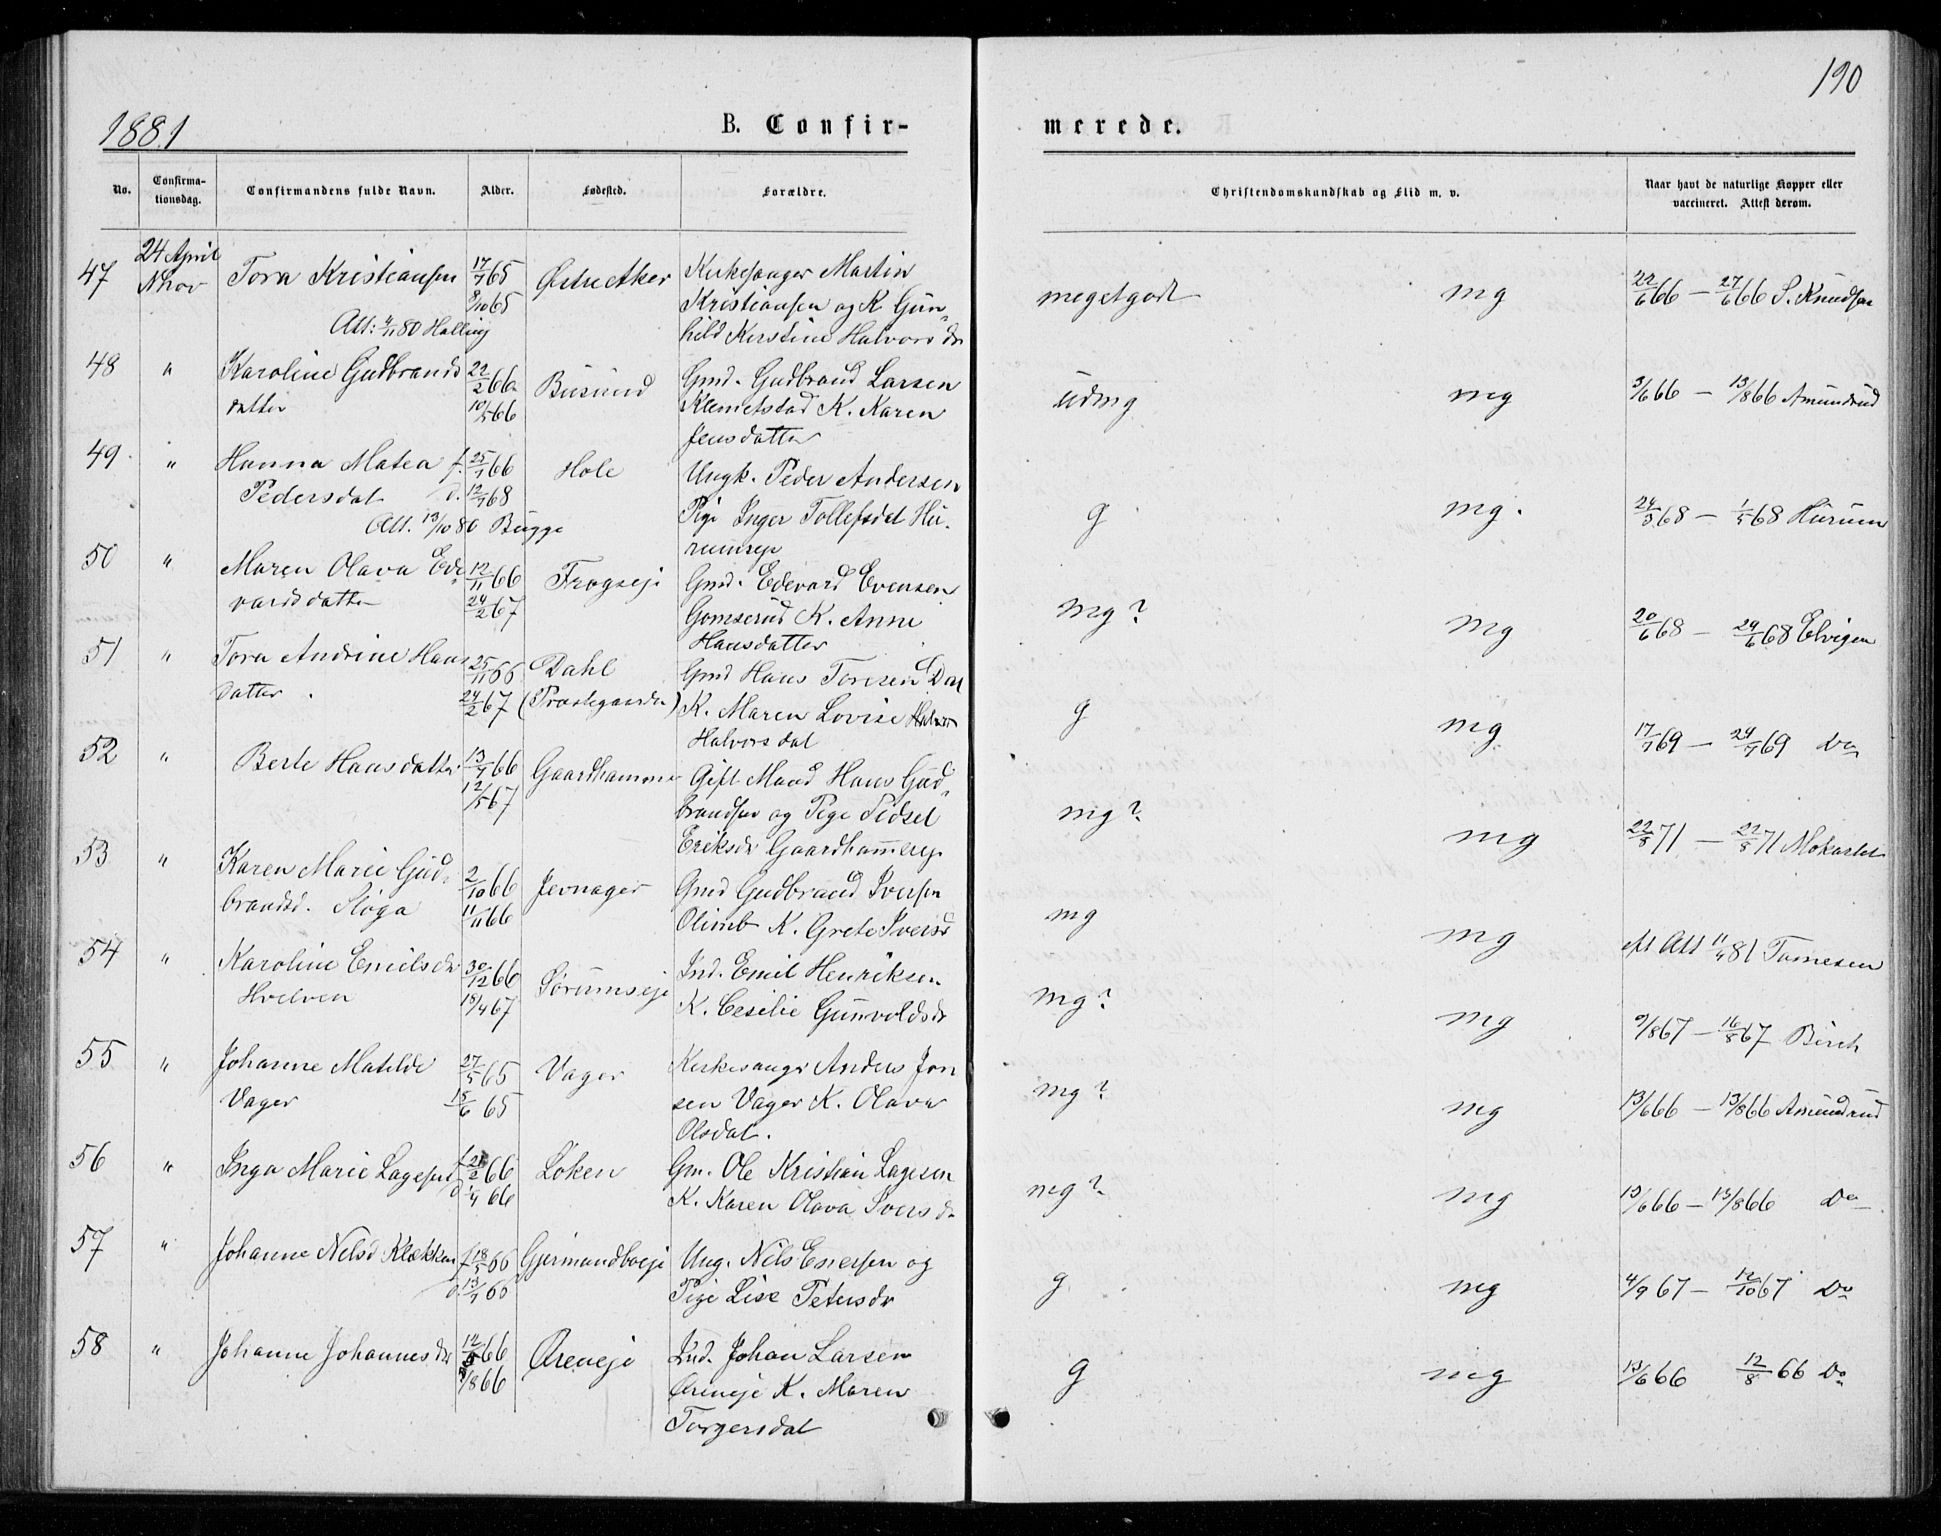 190
1881
B. Confir-
merede.
No.
Confirma-
tionsdag.
Confirmandens fulde Navn.
Alder.
Fødested.
Forældre.
Christendomskundskab og Flid m. v.
Naar havt de naturlige Kopper eller
vaccineret. Attest derom.
47 24 April Tora Kristiansen 17/7 65 Østre Aker Kirkesanger Martin megetgodt mg 22/6 66 — 27/6 66 S. Knudsen
Nhov 8/10 65 Kristiansen og K Gun-
Att: 4/11 80 Halling hild Kirstine Halvorsdr
48 " Karoline Gudbrands 22/2 66 Busund Gmd. Gudbrand Larsen udmg mg 3/6 66 — 13/8 66 Amundrud
datter 10/5 66 Klemetstad K. Karen
Jensdatter
49 " Hanna Matea f. 25/1 66 Hole Ungk. Peder Andersen g mg. 24/3 68 — 1/5 68 Hurum
Pedersdat d. 12/7 68 Pige Inger Tollefsdat Hu-
Att. 13/10 80 Bugge rumseje
50 " Maren Olava Ed- 12/11 66 Frogseje Gmd. Edevard Evensen mg? mg 20/6 68 — 29/6 68 Elvigen
vardsdatter 24/2 67 Gomserud K. Anne
Hansdatter
51 " Tora Andrine Hans 25/11 66 Dahl Gmd Hans Toresen Dal g mg 17/7 69 — 29/7 69 Do
datter. 24/2 67 (Præstegaarden) K. Maren Lovise
Halvorsdat
52 " Berte Hansdatter 13/4 66 Gaardhammer Gift Mand Hans Gud- mg? mg 22/8 71 — 22/8 71 Mokastet
12/5 67 brandsen og Pige Sidsel
Eriksdr Gaardhammerej
53 " Karen Marie Gud- 2/10 66 Jevnager Gmd Gudbrand Iversen mg mg eft Att 11/4 81 Tomesen
brandsd. Sløga 11/11 66 Olimb K. Grete Iversd
54 " Karoline Emilsdr 30/12 66 Sørumseje Ind. Emil Henriksen mg? mg 9/8 67 — 16/8 67 Birch
Hvelven 18/4 67 K. Cesilie Gunvoldsdr
55 " Johanne Matilde 27/5 65 Vager Kirkesangr Anders Jon mg? mg 13/6 66 — 13/8 66 Amundrud
Vager 18/6 65 sen Vager K. Olava
Olsdat.
56 " Inga Marie Lagesen f 66 Løken Gm. Ole Kristian Lagesen mg? mg 13/6 66 — 13/8 66 Do
d 1/4 66 K. Karen Olava Iversdr
57 " Johanne Nelsd Klækken f. 18/5 66 Gjermundboeje Ung. Nils Enersen og g mg 4/9 67 — 12/10 67 Do
d. 13/7 66 Pige Lise Petersdr
58 " Johanne Johannesdr 12/5 66 Øreneje Ind. Johan Larsen g mg 13/6 66 12/8 66 Do
/8 66 Øreneje K. Maren
Torgersdat